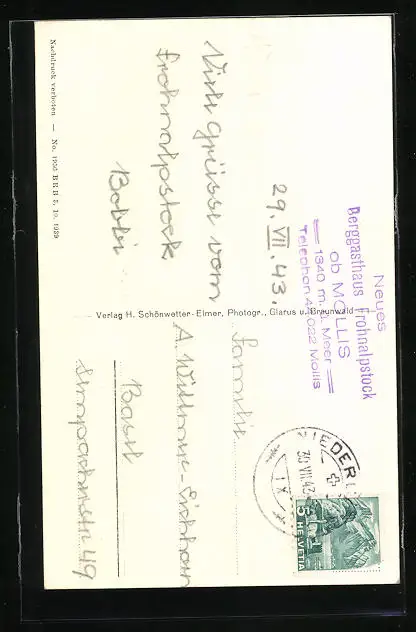 Neues
Berggasthaus Frohnalpstock
ob MOLLIS
1340 m ü. Meer
Telephon 4 4022 Mollis
29. VII. 43.
Viele Grüsse vom
Frohnalpstock
Bobbi
Verlag H. Schönwetter-Elmer, Photogr., Glarus u. Braunwald
Familie
A. Willmer-Eichhorn
Basel
Sempacherstr. 49
NIEDER
30 VII 43
IX
5
HELVETIA
Nachdruck verboten — No. 1956 BRB 3. 10. 1939